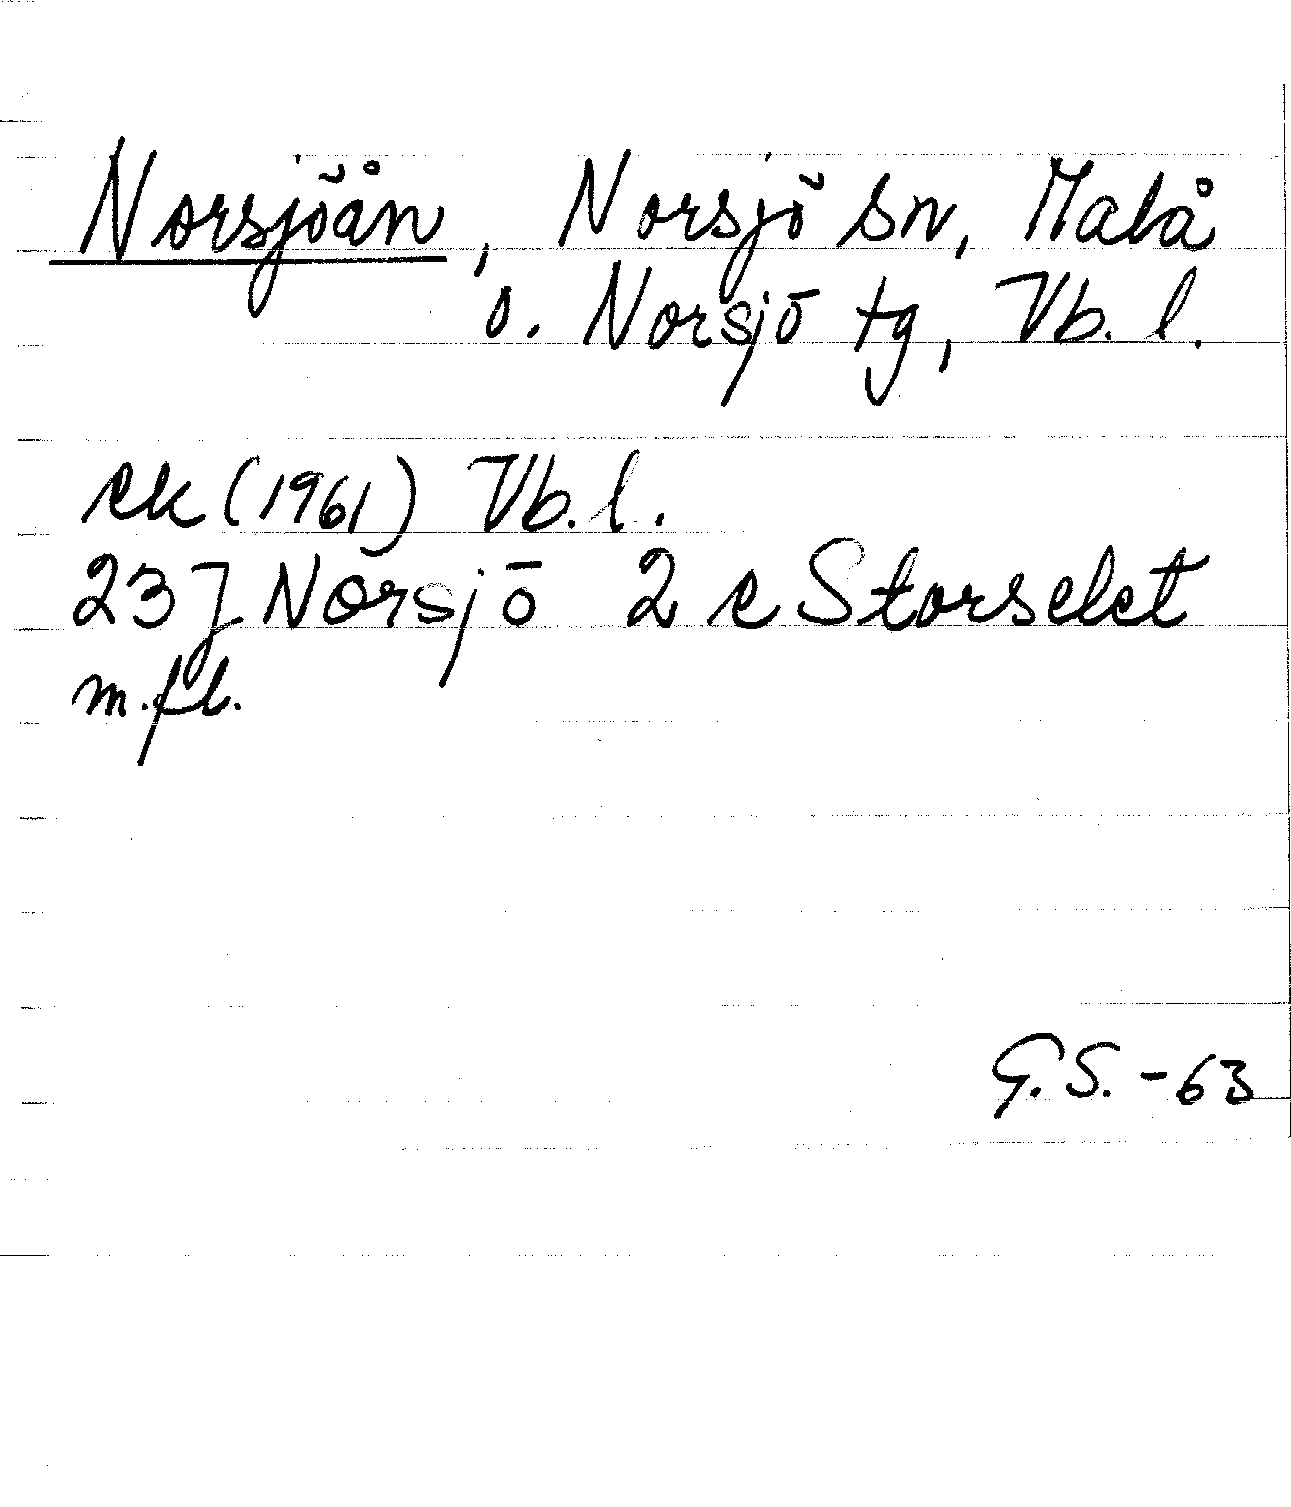 Norsjöån, Norsjö sn, Malå
o. Norsjö tg, Vb. l.
ek (1961) Vb. l.
23 J Norsjö 2 e Storselet
m.fl.
G.S. -63